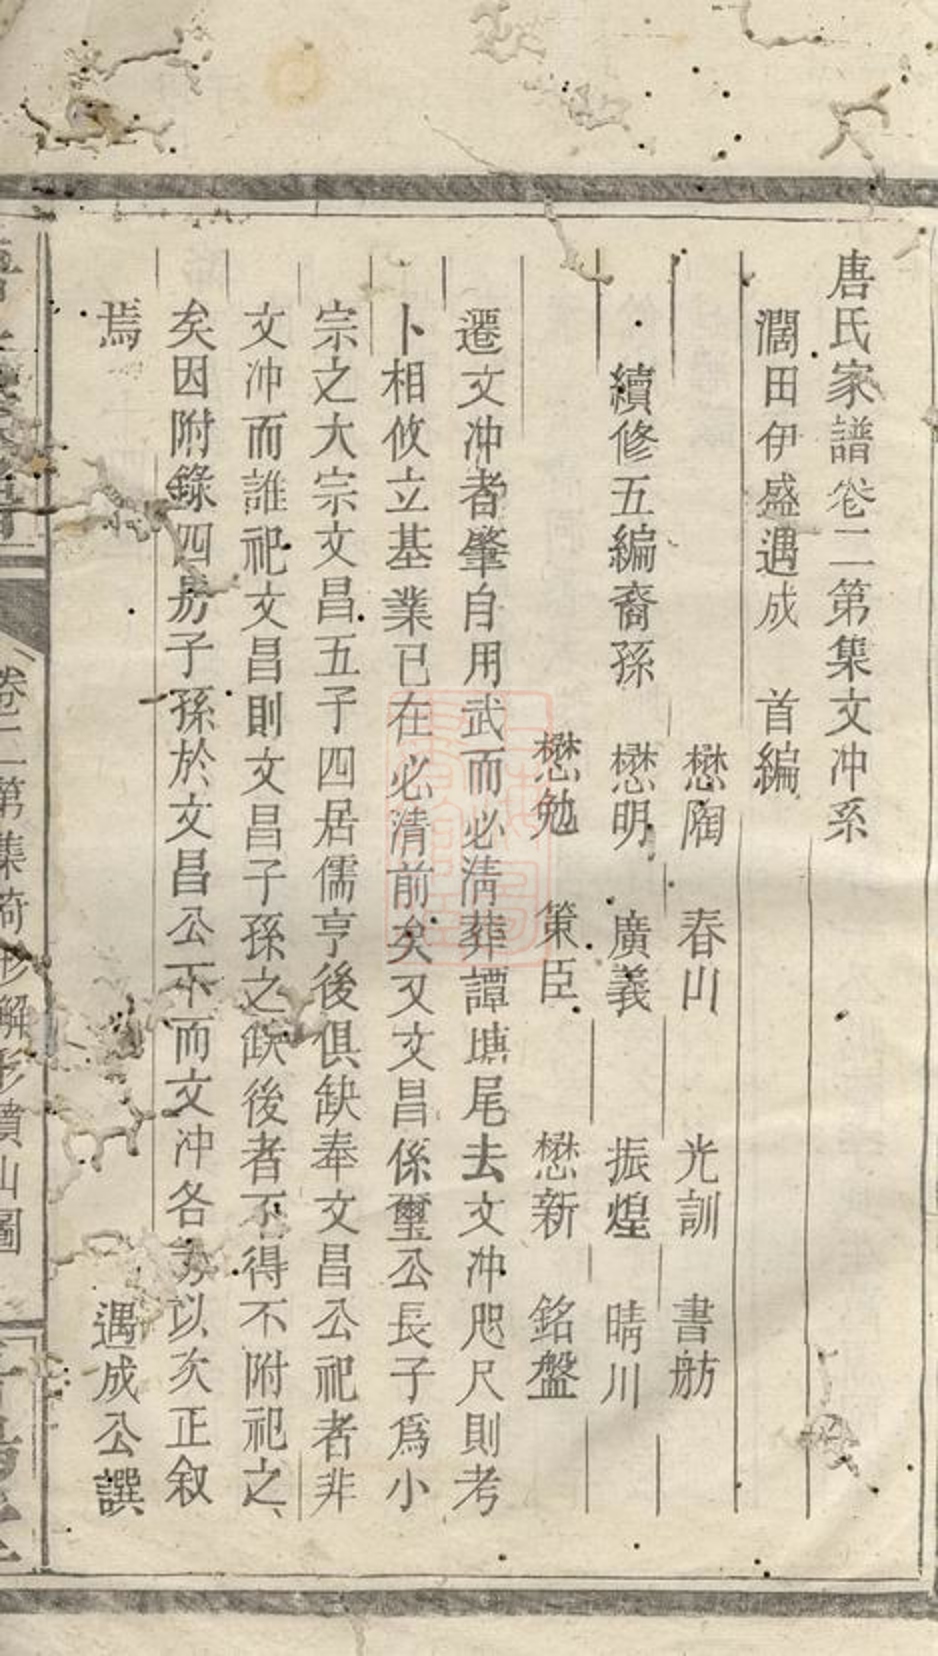 唐氏家譜卷二第集文冲系
濶田伊盛遇成 首編
懋陶 春山 光訓 書舫
續修五編裔孫 懋明 廣義 振煌 晴川
懋勉 策臣 懋新 銘盤
遷文冲者肇自用武而必清葬譚塘尾去文冲咫尺則考
卜相攸立基業已在必清前矣又文昌係璽公長子爲小
宗之大宗文昌五子四居儒亨後俱缺奉文昌公祀者非
文冲而誰祀文昌則文昌子孫之缺後者不得不附祀之
矣因附錄四房子孫於文昌公下而文冲各以次正叙
焉 遇成公譔
卷二第集 形解形墳山圖